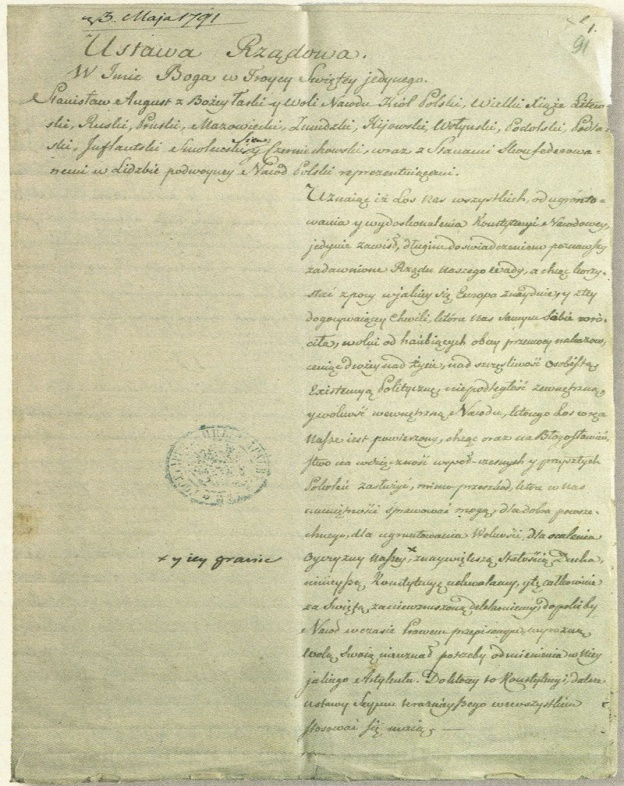 3. Maja 1791
91
Ustawa Rządowa.
W Imie Boga w Troycy Swiętey jedynego.
Stanisław August z Bożey Łaski y Woli Narodu Król Polski, Wielki Xiąże Litew-
ski, Ruski, Pruski, Mazowiecki, Zmudzki, Kijowski, Wołynski, Podolski, Podla-
ski, Inflantski Smolenski, Siew: y Czerniechowski, wraz z Stanami Skonfederowa-
nemi w Liczbie podwoyney Naród Polski reprezentuiącemi.
Uznaiąc iż Los nas wszystkich, od ugrónto-
wania y wydoskonalenia Konstytucyi Narodowey,
jedynie zawisł, długim doswiadczeniem poznawszy
zadawnione Rządu naszego wady, a chcąc korzy-
stać z pory w jakiey się Europa znayduie, y z tey
dogorywaiącey Chwili, która nas samym sobie wró-
ciła, wolni od hańbiących obcey przemocy nakazow,
ceniąc drożey nad życie, nad szczęsliwość osobistą
Existencyą Polityczną, niepodległość zewnętrzną
y wolność wewnętrzną Narodu, ktorego Los w ręce
nasze iest powierzony, chcąc oraz na Błogosławień-
stwo na wdzięczność wspoł-czesnych y przyszłych
Pokoleń zasłużyć, mimo przeszkod, które w nas
namiętności sprawować mogą, dla dobra powsze-
chnego, dla ugruntowania Wolności, dla ocalenia
Oyczyzny naszey x z naywiększą stałością Ducha
x y iey granic
ninieyszą Konstytucyę uchwalamy, y tę całkowicie
za Swiętą, za niewzruszoną deklaruiemy, dopoki by
Naród w czasie Prawem przepisanym, wyrazną
wolą swoią nieuznał potrzeby odmienienia w niey
jakiego Artykułu. Do ktorey to Konstytucyi, dalsze
ustawy Seymu teraznieyszego we wszystkim
stosować się maią.